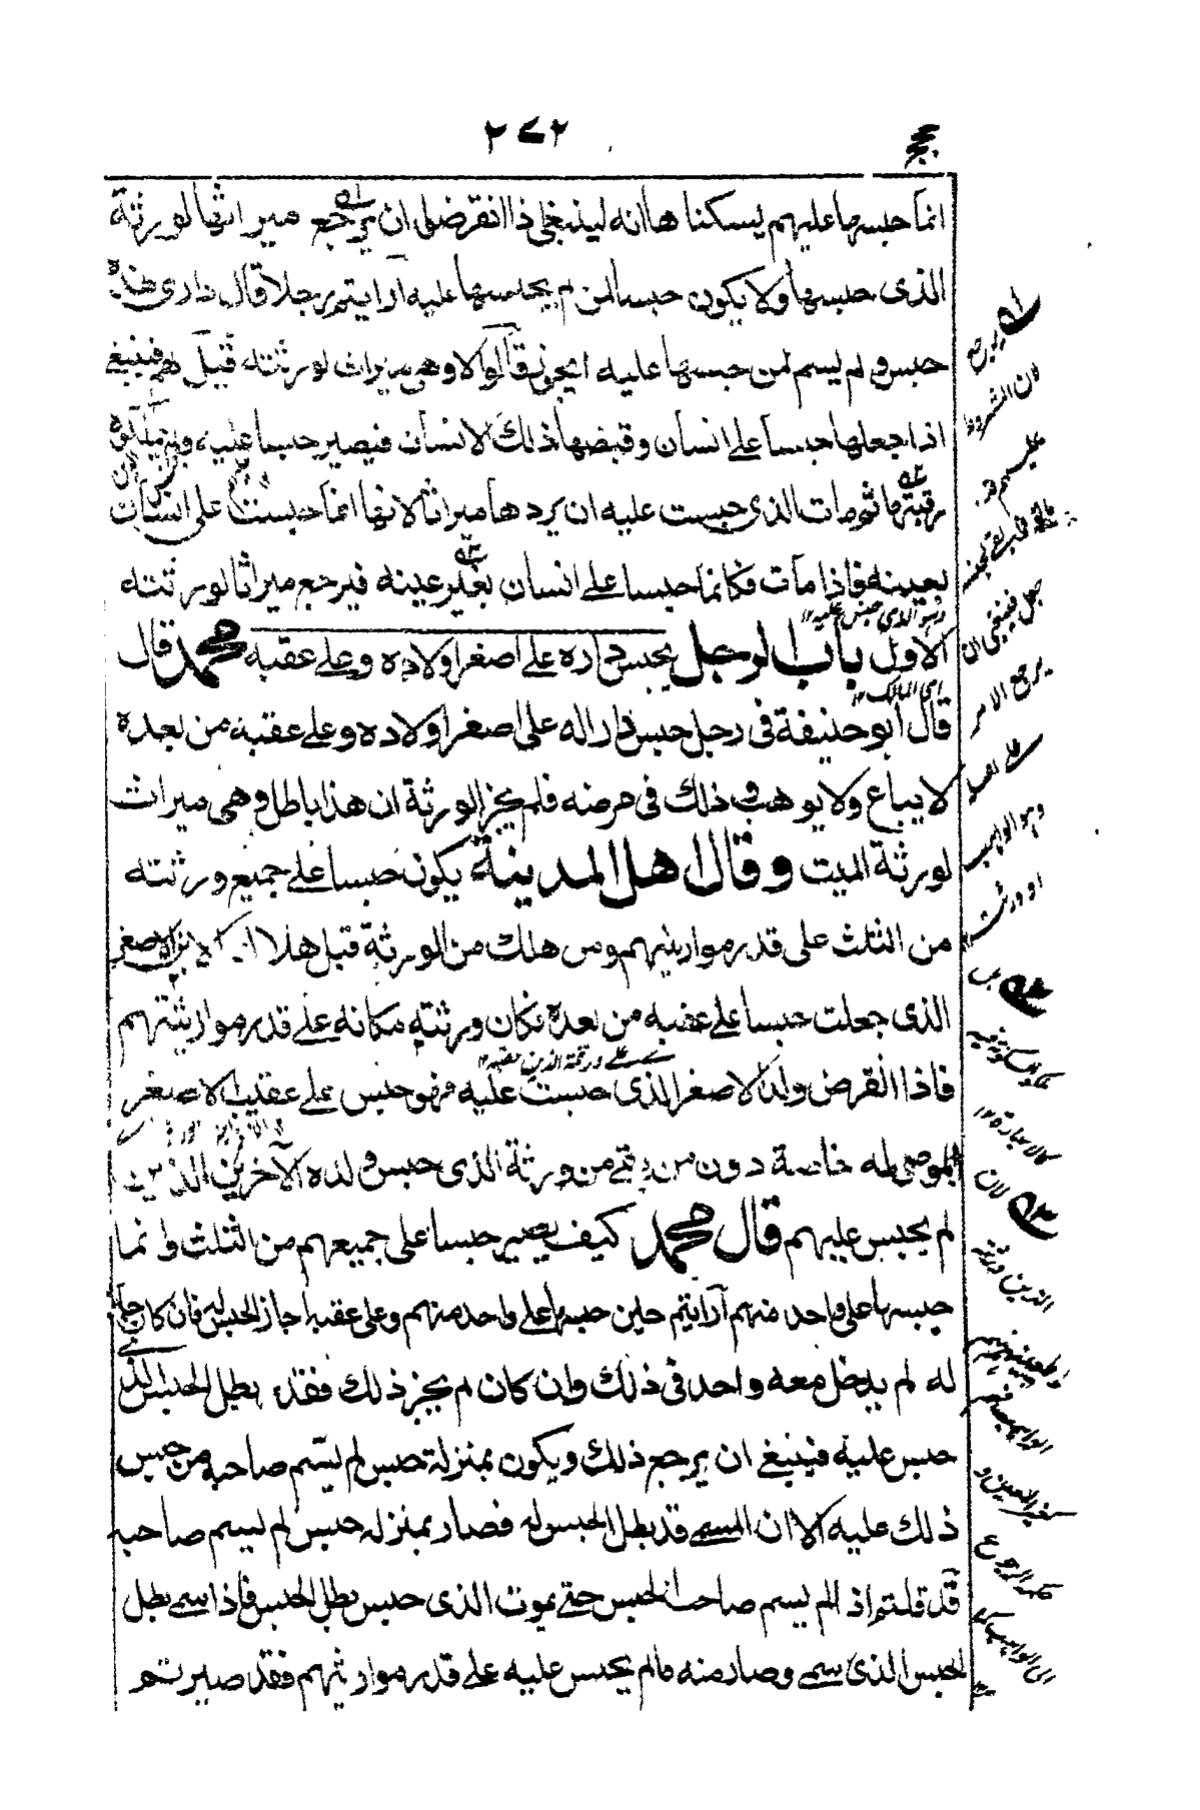 ٢٧٢
حجج
انما حبسها عليهم يسكنا هاانه لينبغي اذا انقرضوا ان يرجع ميراثها لورثة
الذى حبسها ولا يكون حبسا لمن لم يحبسها عليه أرايتم رجلا قال دارى هذه
حبس ولم يسم لمن حبسها عليه ايجوز قالوا لا وهى ميراث لورثته قيل لهم فينبغي
اذا جعلها حبسا على انسان وقبضها ذلك الانسان فيصير حبسا عليه ولم يملكوه
رقبتها ثم مات الذى حبست عليه ان يردها ميراثا لانها انما حبست على انسان
بعينه فاذا مات فكانما حبسا على انسان بغير عينه فيرجع ميراثا لورثته
الاول باب الرجل يحبس داره على اصغر اولاده وعلى عقبه محمد قال
قال ابو حنيفة فى رجل حبس دارا له على اصغر اولاده وعلى عقبه من بعده
لا يباع ولا يوهب فى ذلك فى مرضه فلم يجز الورثة ان هذا باطل وهى ميراث
لورثة الميت وقال اهل المدينة يكون حبسا على جميع ورثته
من الثلث على قدر مواريثهم ومن هلك من الورثة قبل هلاك الاصغر
الذى جعلت حبسا على عقبه من بعده كان ورثته مكانه على قدر مواريثهم
فاذا انقرض ولد الاصغر الذى حبست عليه فهو حبس على عقب الاصغر
الموصى له خاصة دون من بقى من ورثة الذى حبس ولده الآخرين الذين
لم يحبس عليهم قال محمد كيف يصير حبسا على جميعهم من الثلث وانما
حبسها على واحد منهم أرايتم حين حبسها على واحد منهم وعلى عقبه اجاز الحبس له فان كان جاز
له لم يدخل معه واحد فى ذلك وان كان لم يجز ذلك فقد بطل الحبس الذى
حبس عليه فينبغى ان يرجع ذلك ويكون بمنزلة حبس لم يسم صاحبه من حبس
ذلك عليه الا ان المسمى قد بطل الحبس له فصار بمنزلة حبس لم يسم صاحبه
قد قلتم اذ الم يسم صاحب الحبس حتى يموت الذى حبس بطل الحبس فاذا سمى بطل
الحبس الذى سمى وصار منه مالم يحبس عليه على قدر مواريثهم فقد صيرتم
يرجع
لان المشروط
يرجع الامر
وهو الواهب
او ورثته
لان
الذين ورثته
الى الواهب